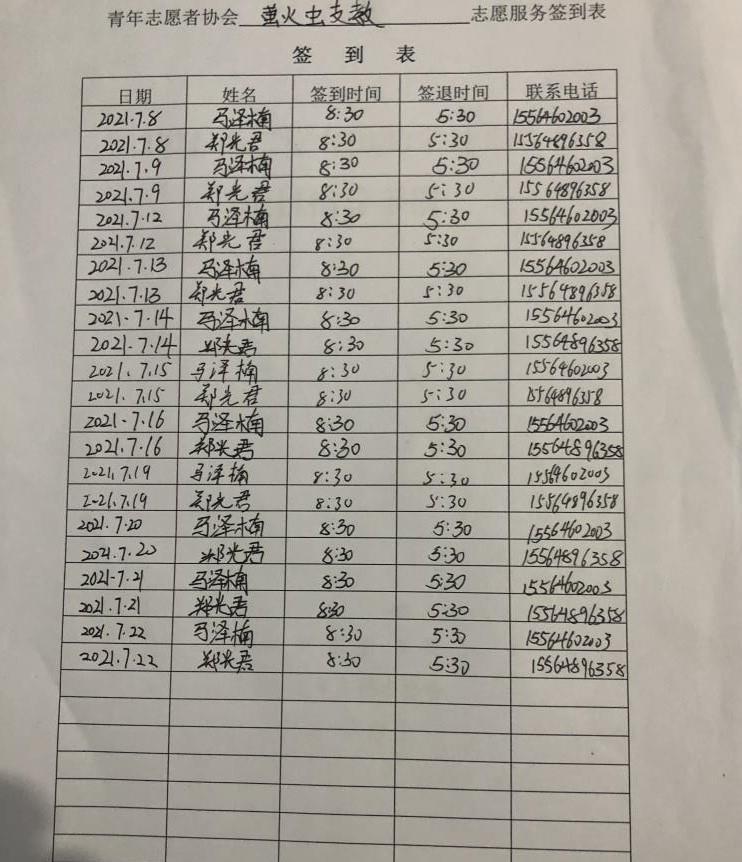 青年志愿者协会 萤火虫支教 志愿服务签到表
签 到 表
日期 姓名 签到时间 签退时间 联系电话
2021.7.8 马泽楠 8:30 5:30 15564602003
2021.7.8 郑光君 8:30 5:30 15564896358
2021.7.9 马泽楠 8:30 5:30 15564602003
2021.7.9 郑光君 8:30 5:30 15564896358
2021.7.12 马泽楠 8:30 5:30 15564602003
2021.7.12 郑光君 8:30 5:30 15564896358
2021.7.13 马泽楠 8:30 5:30 15564602003
2021.7.13 郑光君 8:30 5:30 15564896358
2021.7.14 马泽楠 8:30 5:30 15564602003
2021.7.14 郑光君 8:30 5:30 15564896358
2021.7.15 马泽楠 8:30 5:30 15564602003
2021.7.15 郑光君 8:30 5:30 15564896358
2021.7.16 马泽楠 8:30 5:30 15564602003
2021.7.16 郑光君 8:30 5:30 15564896358
2021.7.19 马泽楠 8:30 5:30 15564602003
2021.7.19 郑光君 8:30 5:30 15564896358
2021.7.20 马泽楠 8:30 5:30 15564602003
2021.7.20 郑光君 8:30 5:30 15564896358
2021.7.21 马泽楠 8:30 5:30 15564602003
2021.7.21 郑光君 8:30 5:30 15564896358
2021.7.22 马泽楠 8:30 5:30 15564602003
2021.7.22 郑光君 8:30 5:30 15564896358